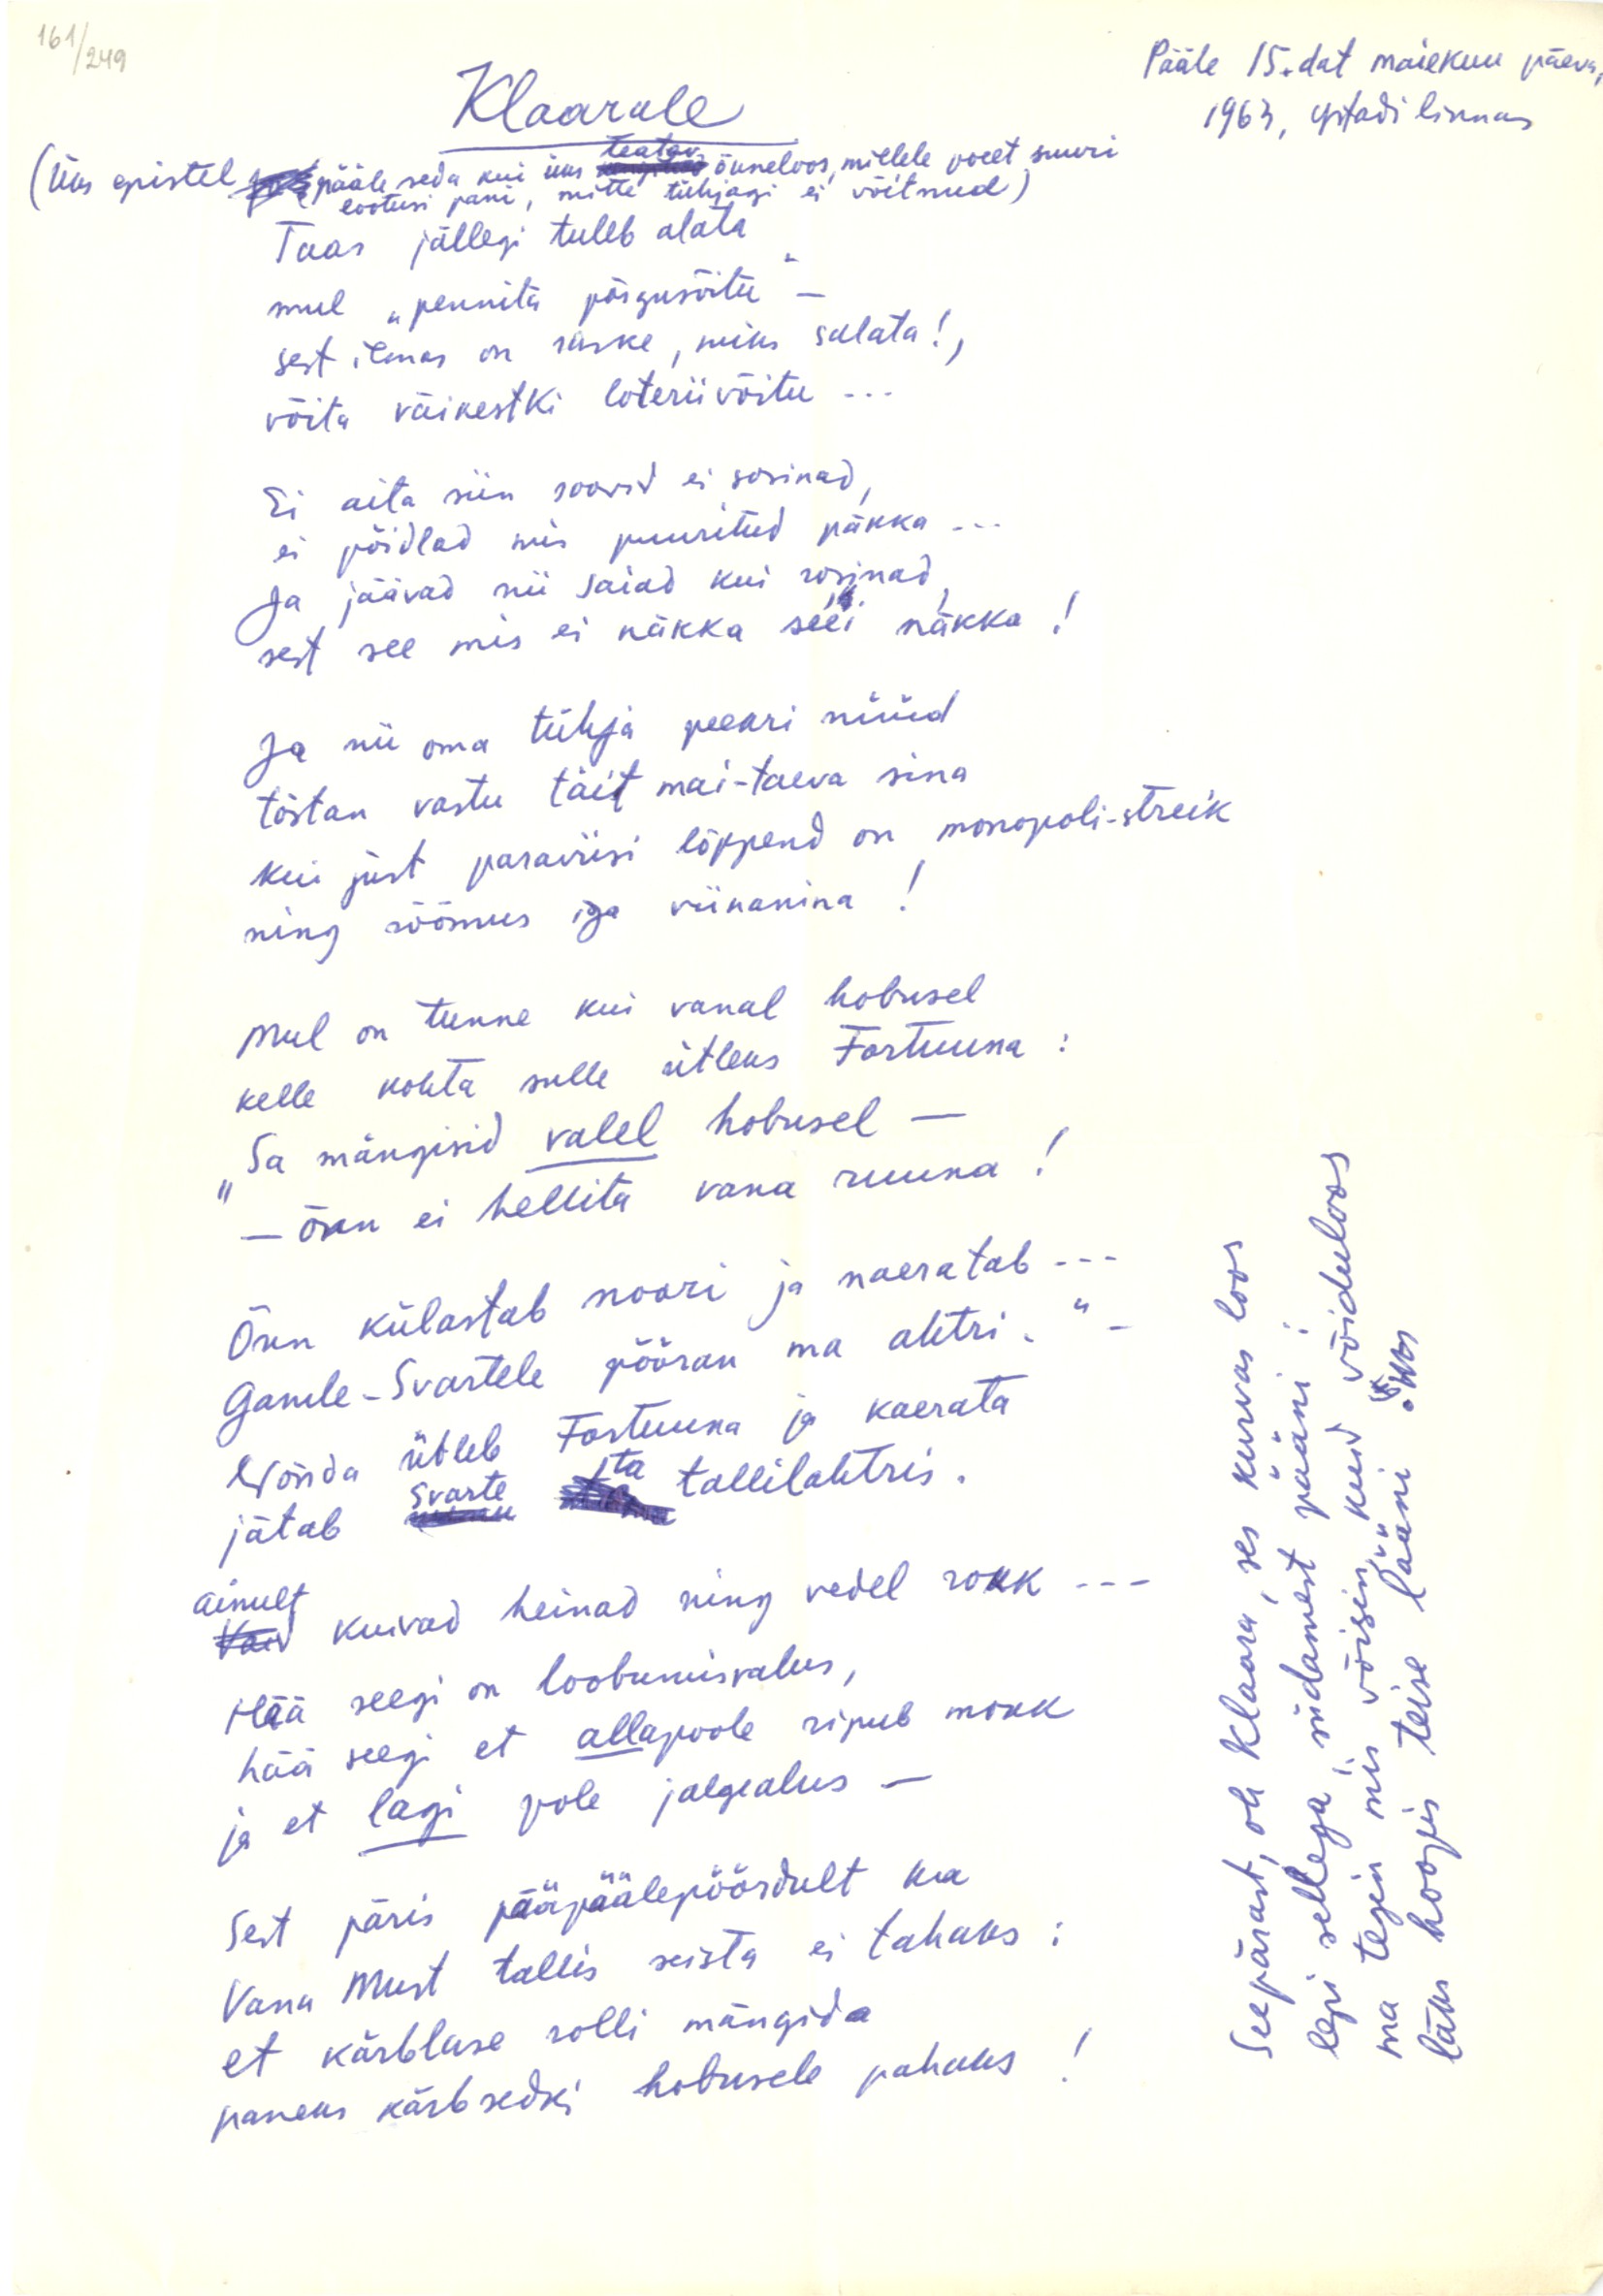 161/249
Pääle 15.dat maiekuu päeva,
1963, Ystadi linnas
Klaarale
(Üks epistel pääle seda kui üks teatav õnneloos, millele poeet suuri
lootusi pani, mitte tühjagi ei võitnud)
Taas jällegi tuleb alata
mul „pennita põrgusõitu" –
sest ilmas on raske, miks salata!,
võita väikestki loteriivõitu ...
Ei aita siin soovid ei sosinad,
ei pöidlad mis puuritud päkka ...
Ja jäävad nii saiad kui rosinad,
sest see mis ei näkka see ei näkka!
Ja nii oma tühja peekri nüüd
tõstan vastu täit mai-taeva sina
kui just paraviisi lõppend on monopoli-streik
ning rõõmus iga viinanina!
Mul on tunne kui vanal hobusel
kelle kohta sulle ütleks Fortuuna:
„Sa mängisid valel hobusel —
— õnn ei hellita vana ruuna!
Õnn külastab noori ja naeratab ---
Gamle-Svartele pööran ma ahtri." –
Nõnda ütleb Fortuuna ja kaerata
jätab Svarte ta tallilahtris.
ainult
Vaid kuivad heinad ning vedel rokk ---
Hää seegi on loobumisvalus,
hää seegi et allapoole ripub mokk
ja et lagi pole jalgealus —
Sest päris pääpäälepöördult ka
Vana Must tallis seista ei tahaks:
et kärblase rolli mängida
paneks kärbsedki hobusele pahaks!
Seepärast, oh Klaara, ses kurvas loos
lepi sellega, südamest pääni:
ma tegin mis võisin, kuid võiduloos
läks hoopis teise lääni.